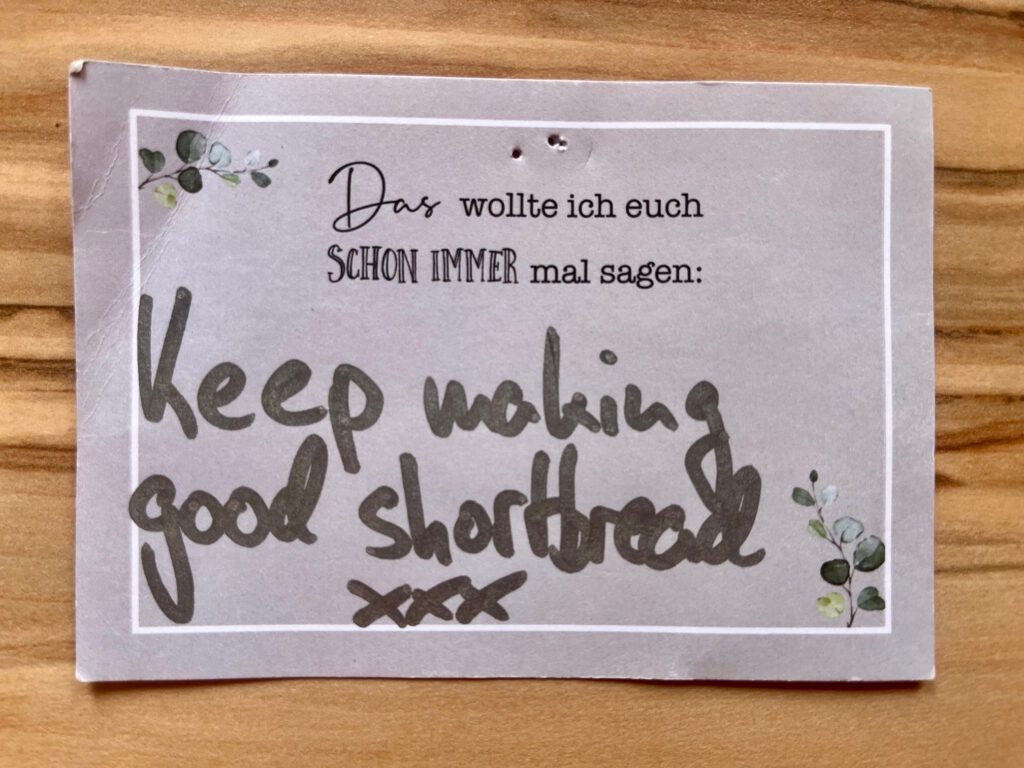 Das wollte ich euch
SCHON IMMER mal sagen:
Keep making
good shortbread
xxx